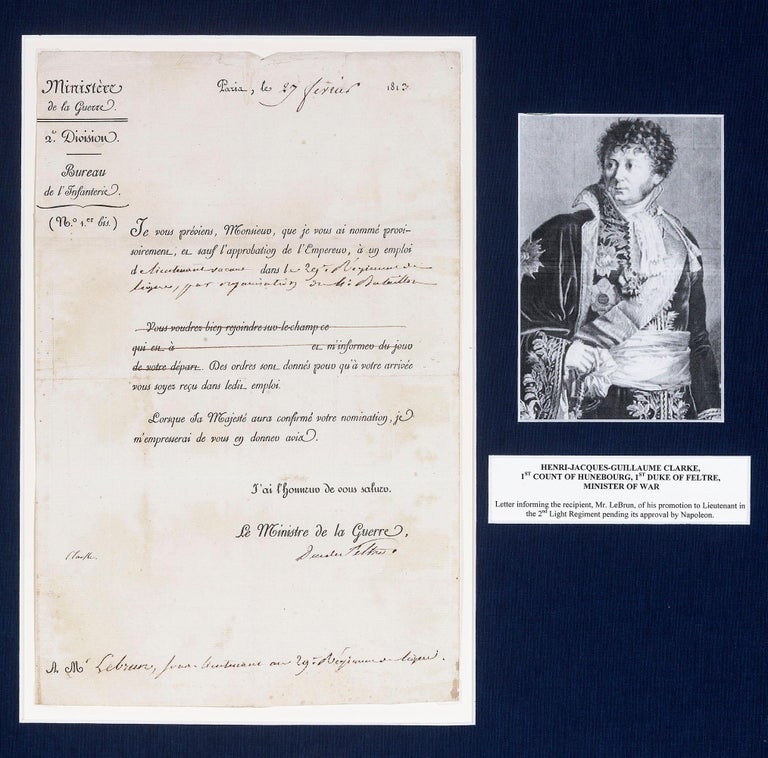 Ministère
de la Guerre.
2e Division.
Bureau
de l'Infanterie.
(No 1.er bis.)
Paris, le 27 février 1813
Je vous préviens, Monsieur, que je vous ai nommé provi-
soirement, et sauf l'approbation de l'Empereur, à un emploi
de lieutenant vacant dans le 29e Régiment de
ligne, par organisation du 4e Bataillon
Vous voudrez bien rejoindre sur-le-champ ce
qui est à et m'informer du jour
de votre départ. Des ordres sont donnés pour qu'à votre arrivée
vous soyez reçu dans ledit emploi.
Lorsque Sa Majesté aura confirmé votre nomination, je
m'empresserai de vous en donner avis.
J'ai l'honneur de vous saluer.
Le Ministre de la Guerre,
Duc de Feltre.
A Mr Lebrun, sous-lieutenant au 29e Régiment de ligne.
HENRI-JACQUES-GUILLAUME CLARKE,
1ST COUNT OF HUNEBOURG, 1ST DUKE OF FELTRE,
MINISTER OF WAR
Letter informing the recipient, Mr. LeBrun, of his promotion to Lieutenant in
the 2nd Light Regiment pending its approval by Napoleon.